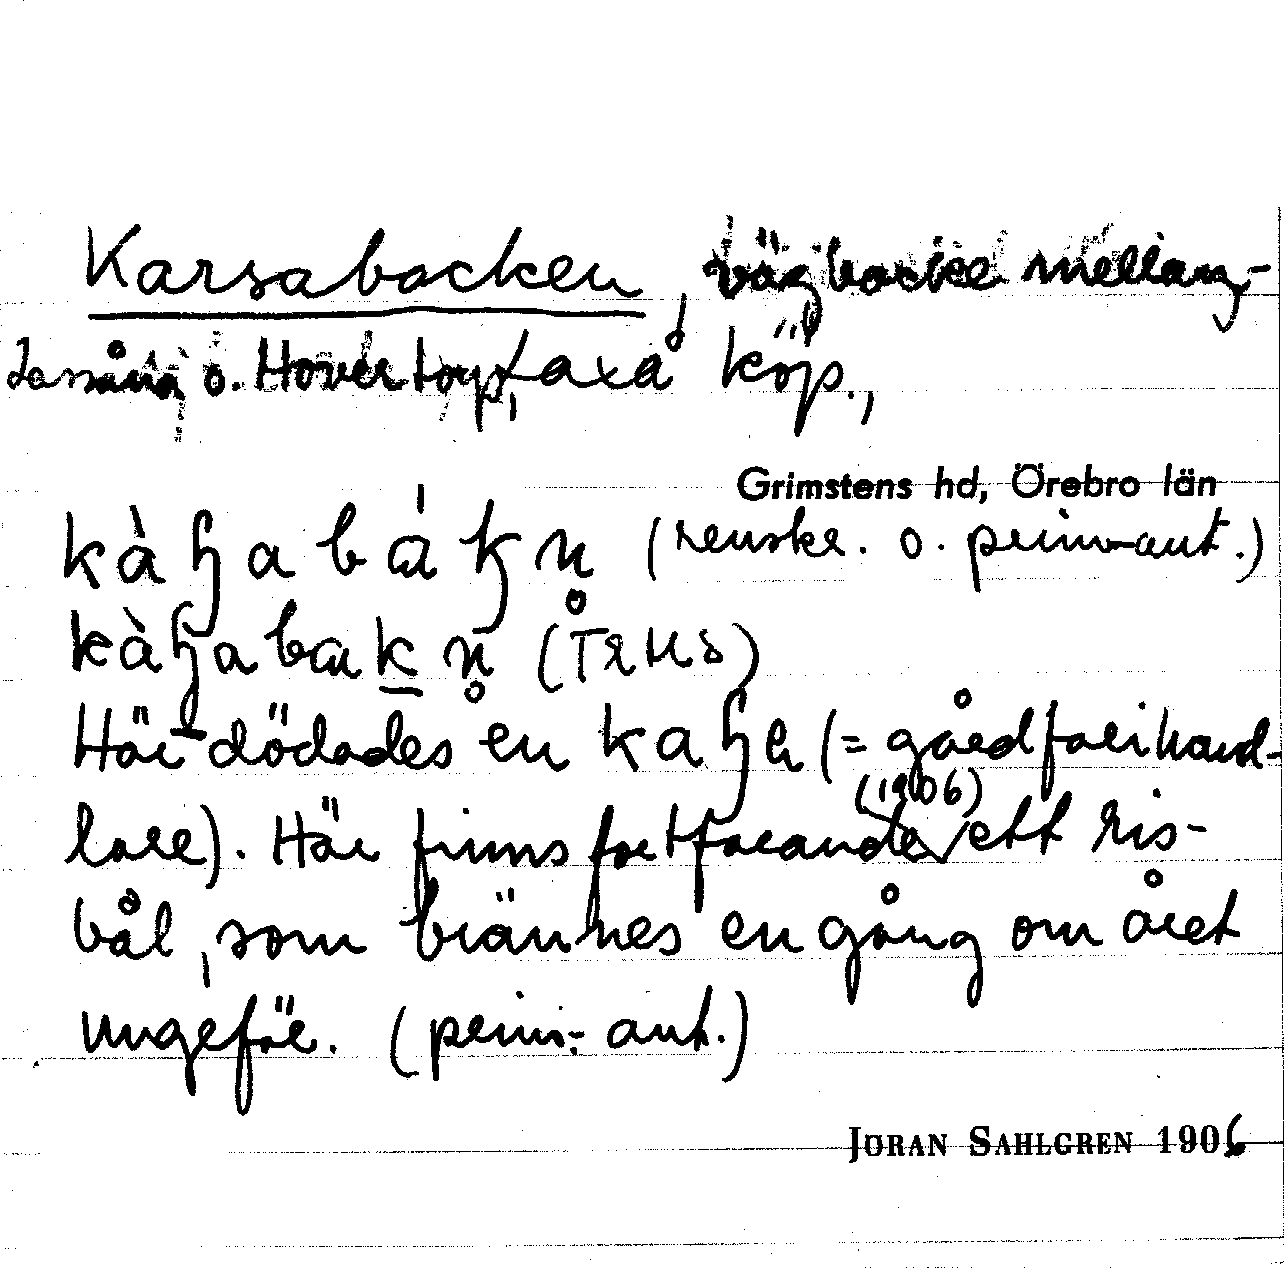 Karsabacken, vägbacke mellan
Lassåna o. Hovertorp, Laxå köp.,
Grimstens hd, Örebro län
(renskr. o. prim-ant.)
Här dödades en (= gårdfarihand-
lare). Här finns fortfarande (1906) ett ris-
bål, som brännes en gång om året
ungefär. (prim.-ant.)
JÖRAN SAHLGREN 1906